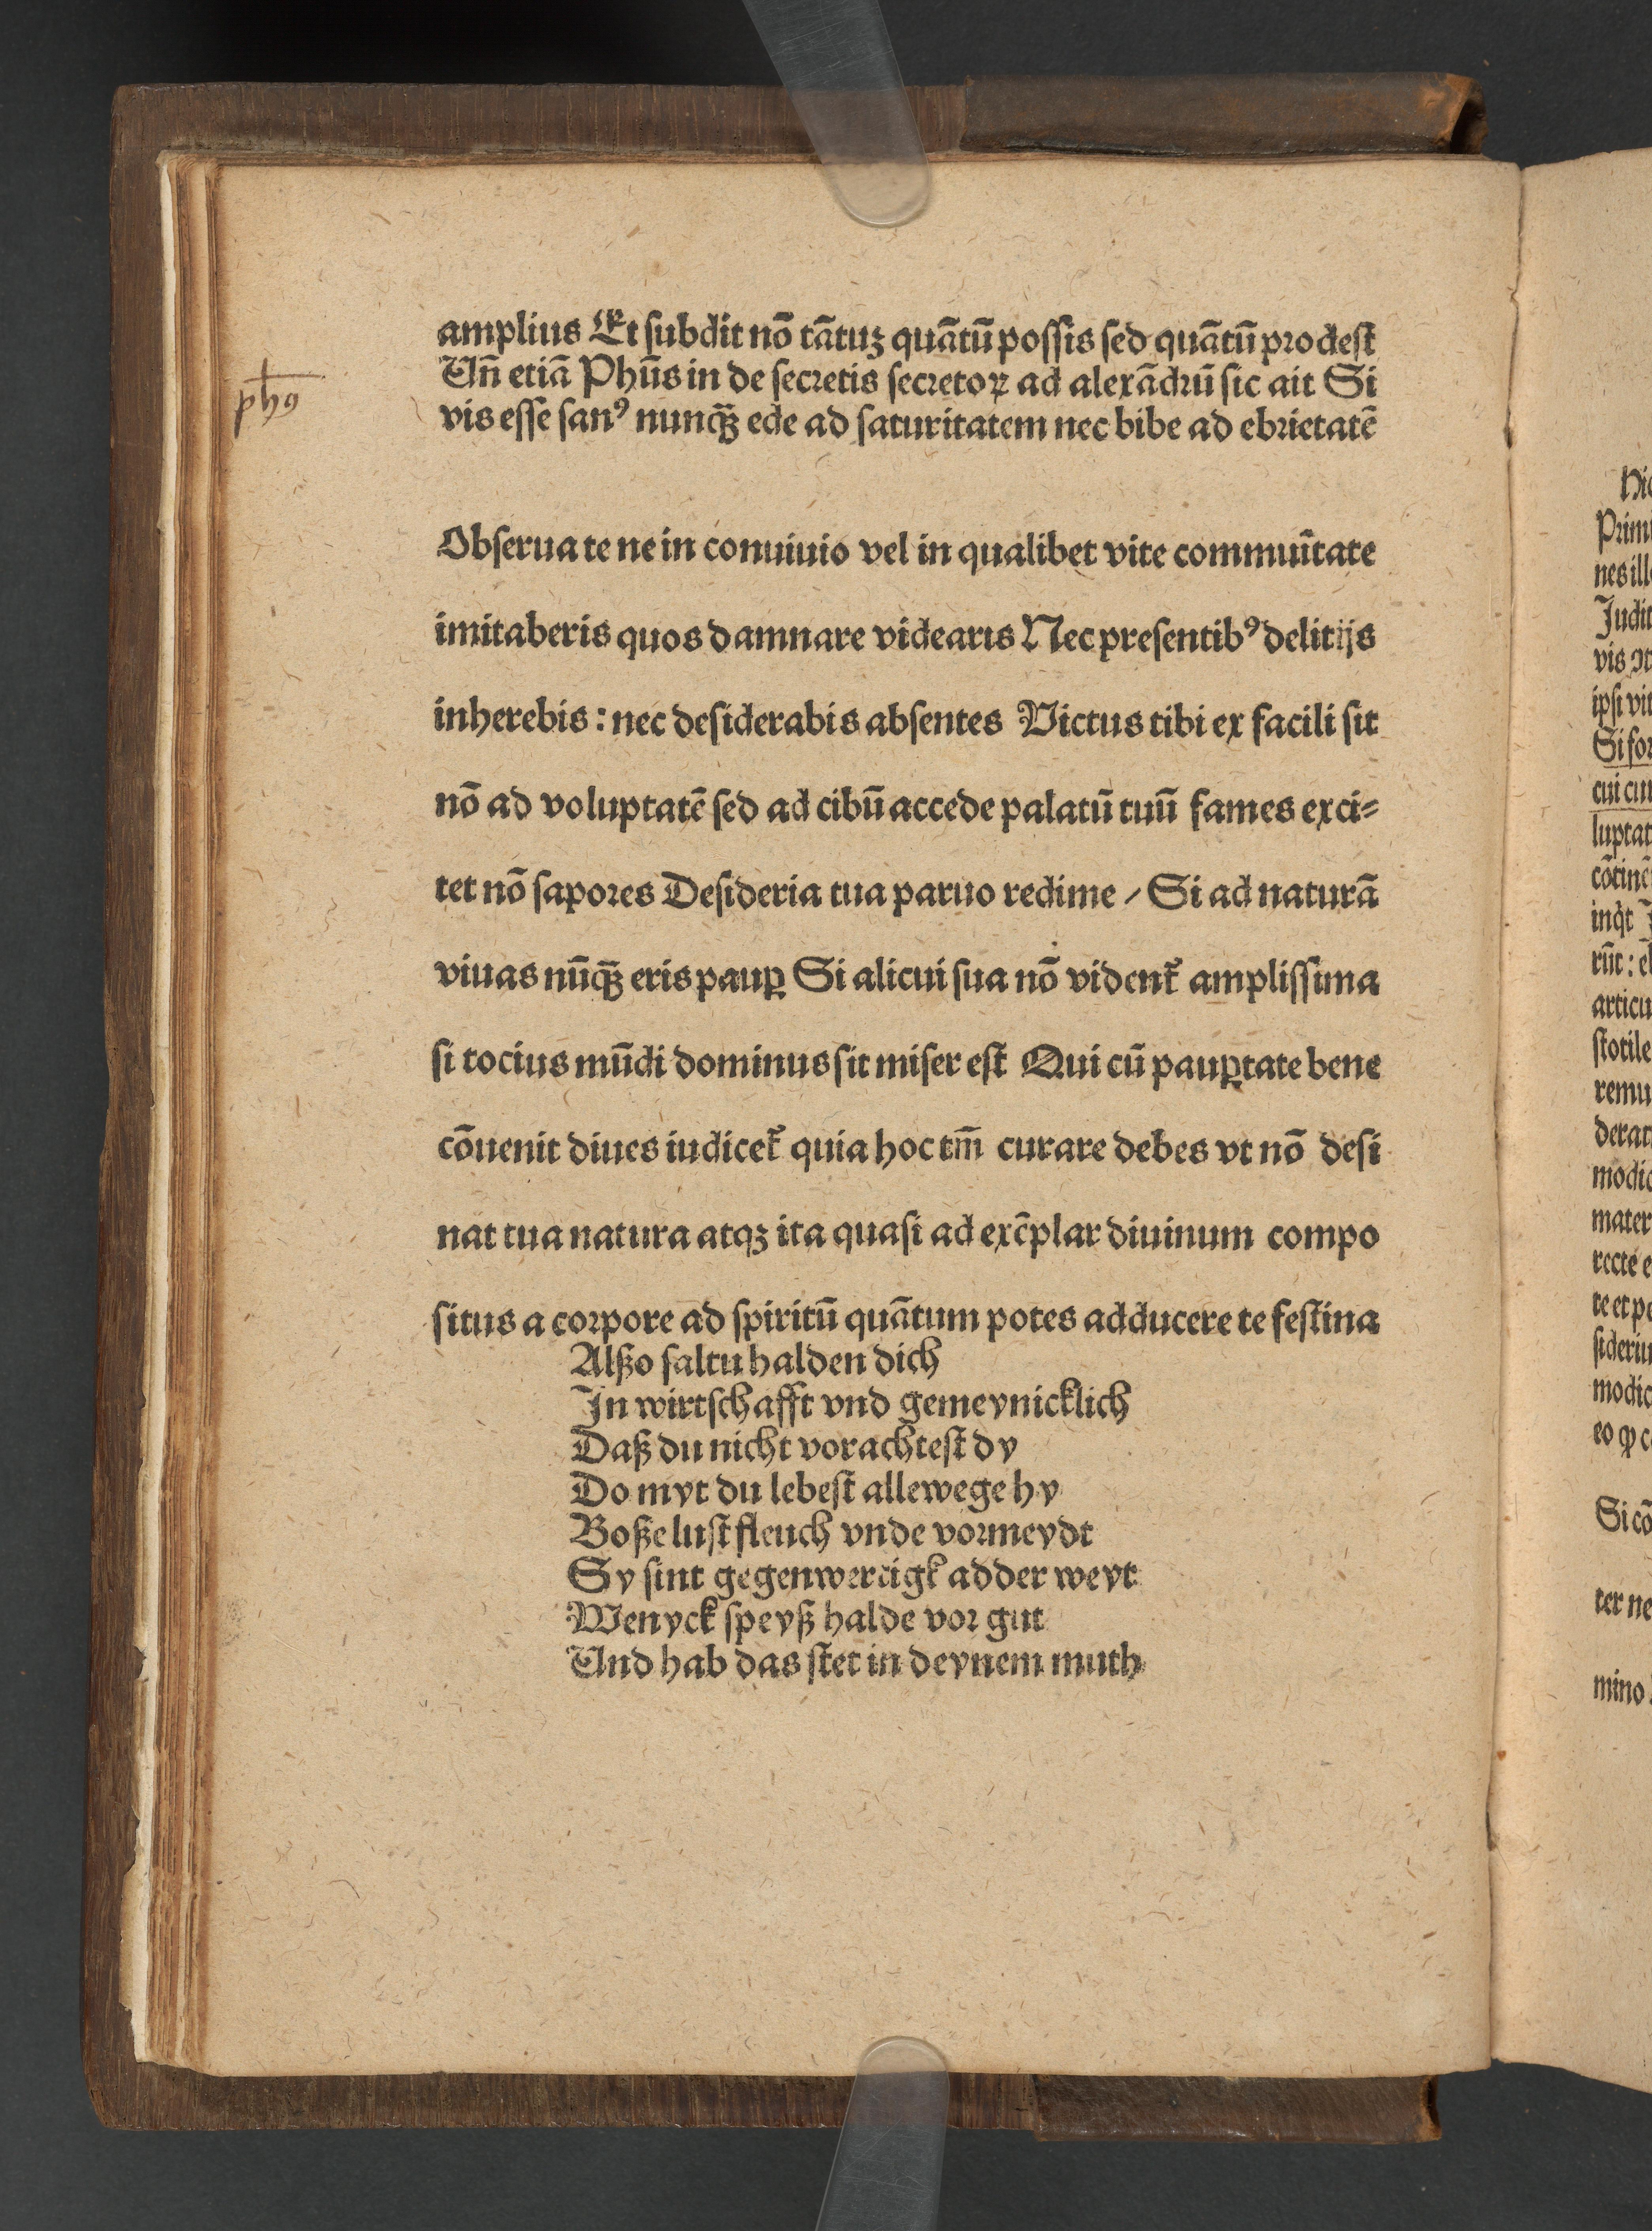 amplius Et ſubdit nō tātuꝫ quātū poſſis ſed quātū prodeſt
Vn̄ etiā Phūs in de ſecretis ſecretoꝝ ad alexādrū ſic ait Si
vis eſſe ſanꝰ nunqꝫ̄ ede ad ſaturitatem nec bibe ad ebrietatē
ph9
Obſerua te ne in conuiuio vel in qualibet vite commuītate
imitaberis quos damnare videaris Nec preſentibꝰ delitijs
inherebis: nec deſiderabis abſentes Victus tibi ex facili ſit
nō ad voluptatē ſed ad cibū accede palatū tuū fames exci⸗
tet nō ſapores Deſideria tua paruo redime / Si ad naturā
viuas nūqꝫ̄ eris pauꝑ Si alicui ſua nō videntᷣ ampliſſima
ſi tocius mūdi dominus ſit miſer eſt Qui cū pauꝑtate bene
cōuenit diues iudicetᷣ quia hoc tm̄ curare debes vt nō deſi
nat tua natura atqꝫ ita quaſi ad exēplar diuinum compo
ſitus a corpore ad ſpiritū quātum potes adducere te feſtina
Alßo ſaltu halden dich
In wirtſchafft vnd gemeynicklich
Daß du nicht vorachteſt dy
Do myt du lebeſt allewege hy
Boße luſt fleuch vnde vormeydt
Sy ſint gegenwertigk adder weyt
Wenyck ſpeyß halde vor gut
Vnd hab das ſtet in deynem muth